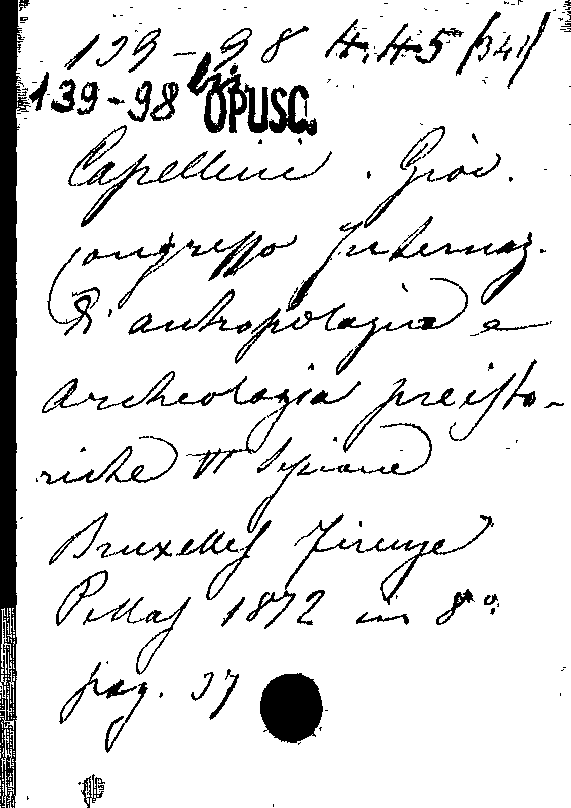 139-98 H.H5 (341)
139-98 OPUSC.
Capellini . Giov.
Congresso Internaz.
di antropologia e
Archeologia preisto-
riche VI Sessione
Bruxelles Firenze
Pellas 1872 in 8°
pag. 37